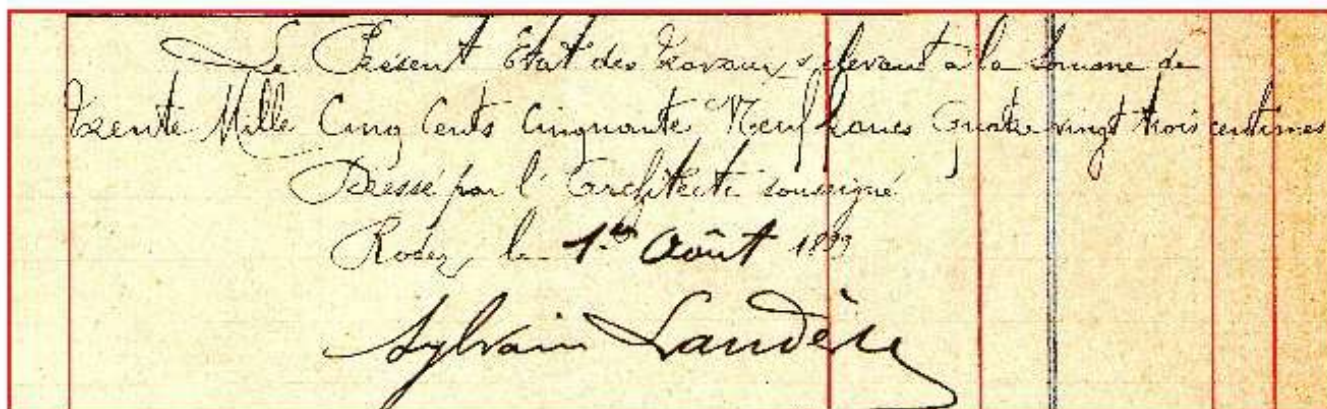 Le Présent Etat des Travaux s'élevant à la Somme de
Trente Mille Cinq Cents Cinquante Neuf francs Quatre vingt trois centimes
Dressé par l'Architecte soussigné
Rodez, le 1er Août
Sylvain